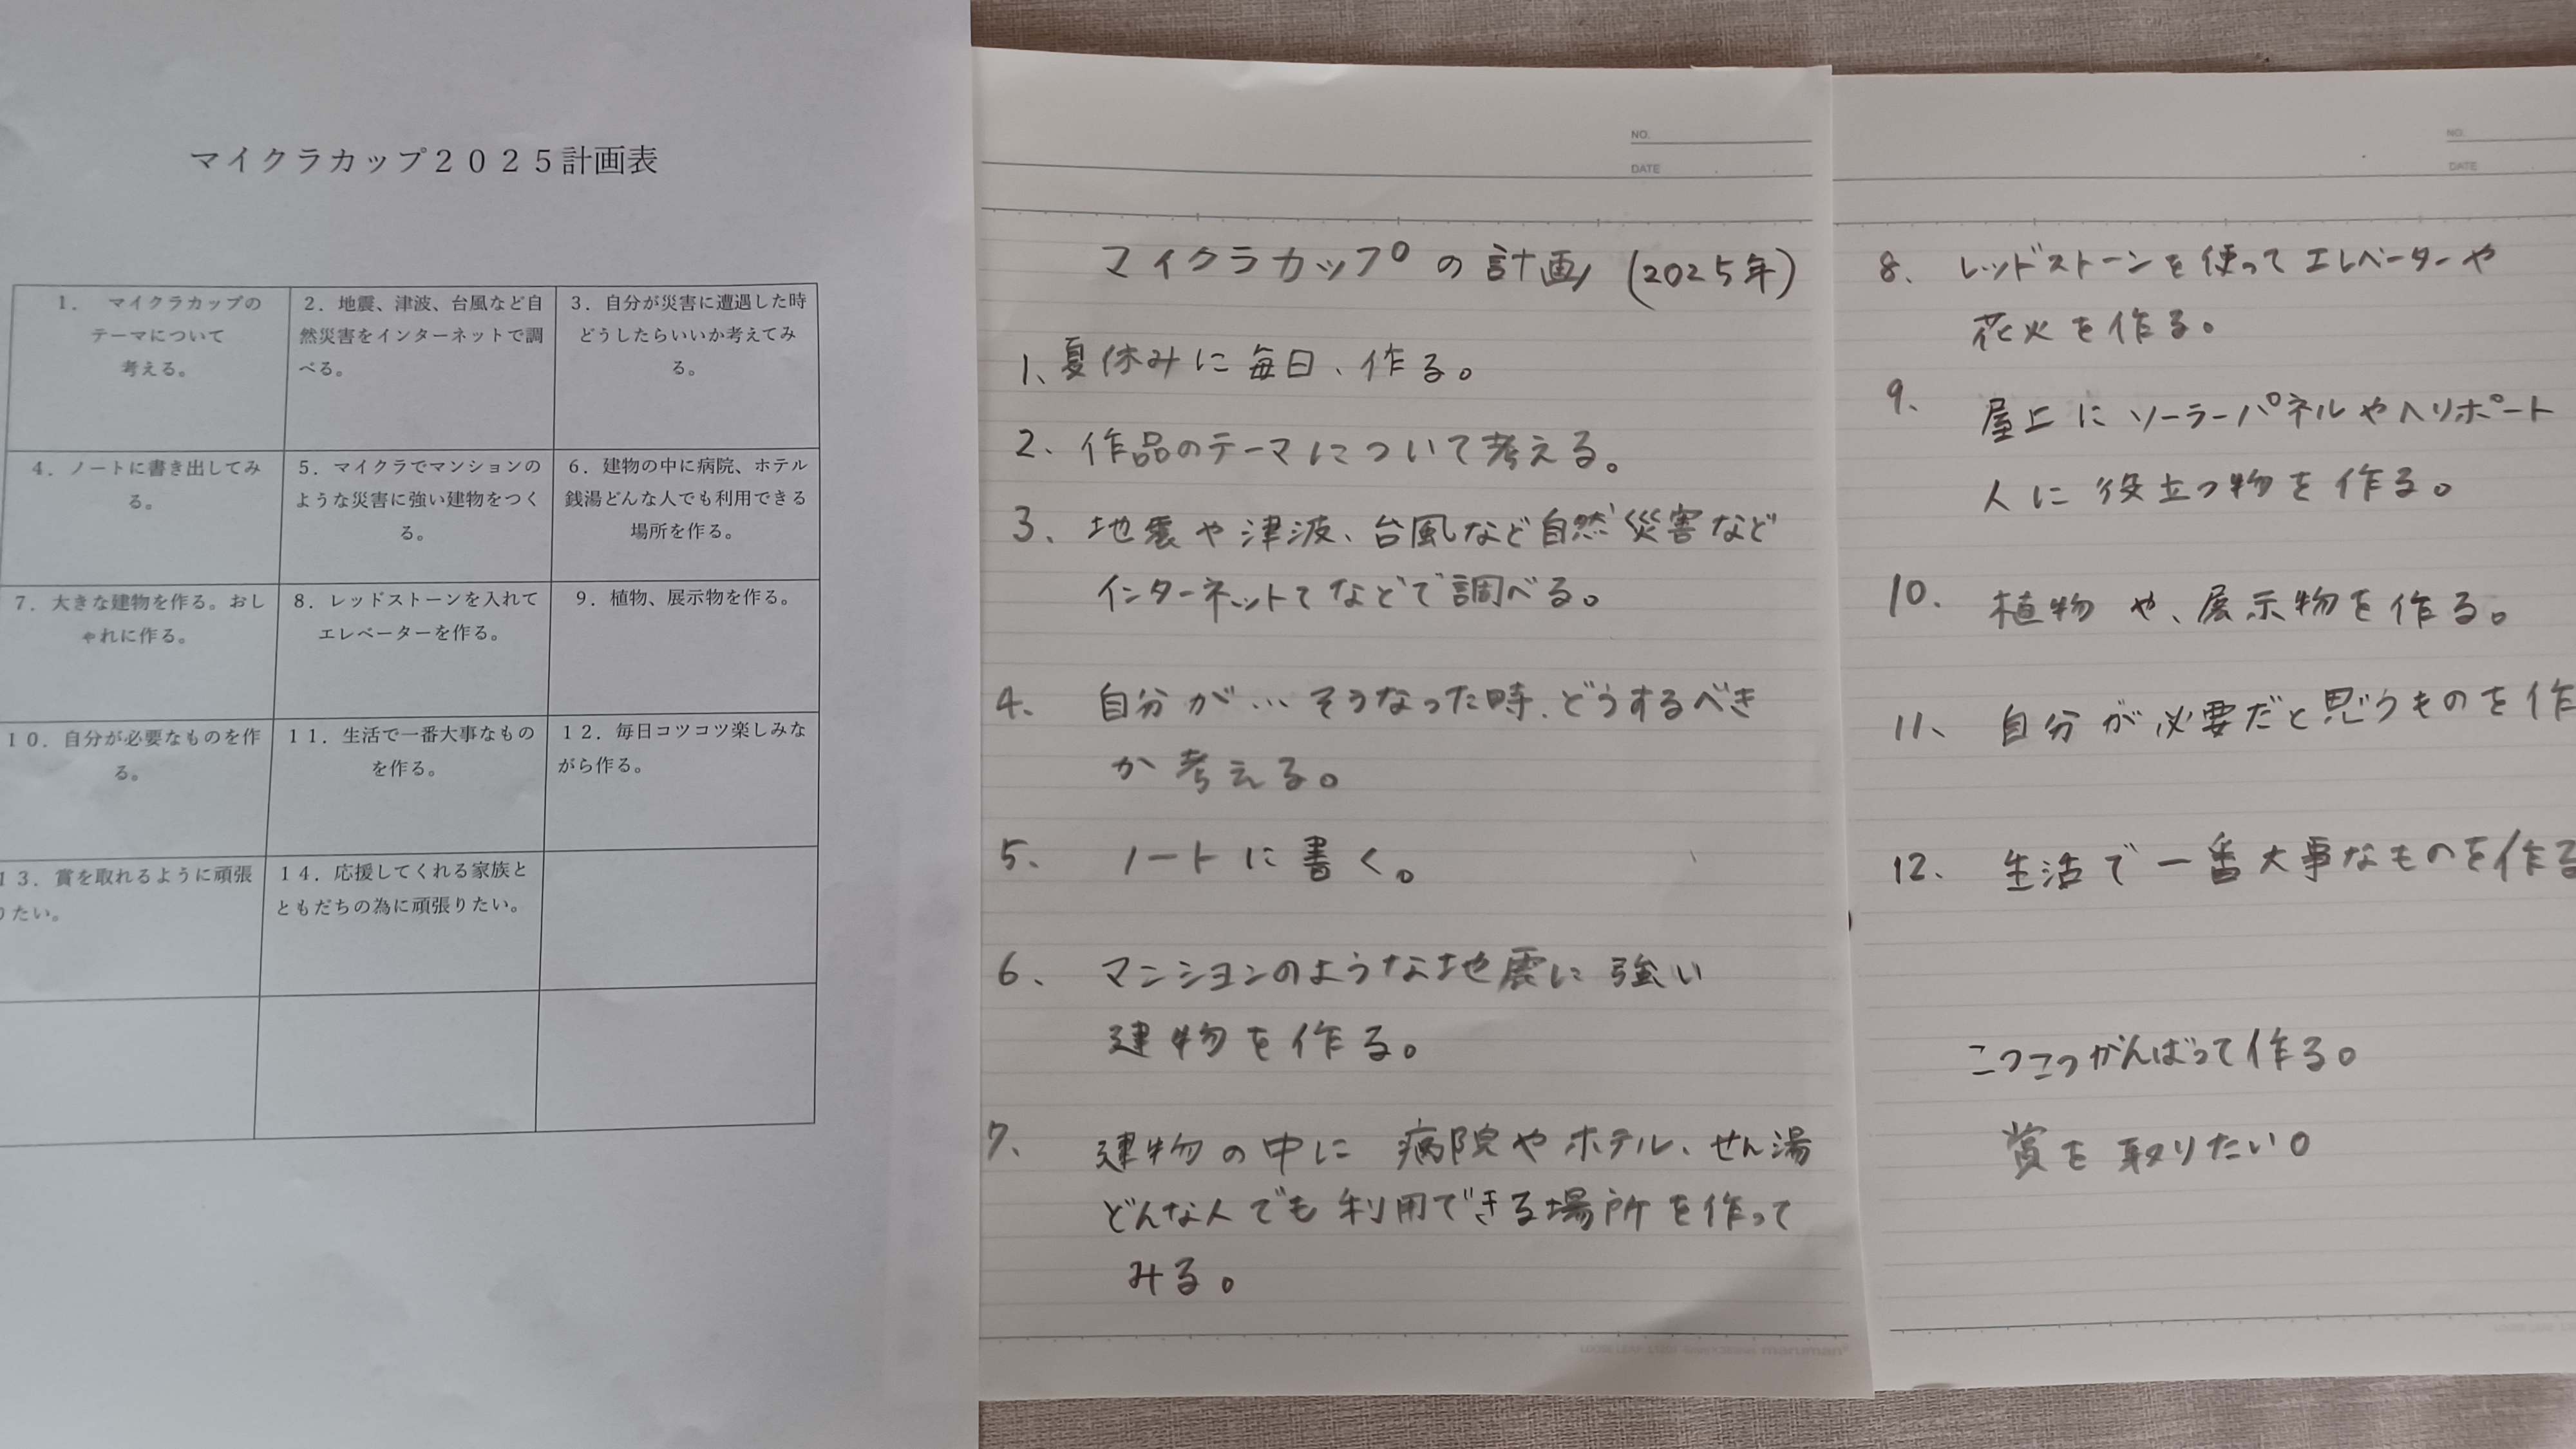 マイクラカップ２０２５計画表
１．　マイクラカップの
テーマについて
考える。
２．地震、津波、台風など自
然災害をインターネットで調
べる。
３．自分が災害に遭遇した時
どうしたらいいか考えてみ
る。
４．ノートに書き出してみ
る。
５．マイクラでマンションの
ような災害に強い建物をつく
る。
６．建物の中に病院、ホテル
銭湯どんな人でも利用できる
場所を作る。
７．大きな建物を作る。おし
ゃれに作る。
８．レッドストーンを入れて
エレベーターを作る。
９．植物、展示物を作る。
１０．自分が必要なものを作
る。
１１．生活で一番大事なもの
を作る。
１２．毎日コツコツ楽しみな
がら作る。
１３．賞を取れるように頑張
りたい。
１４．応援してくれる家族と
ともだちの為に頑張りたい。
NO.
DATE
マイクラカップの計画 (2025年)
1、夏休みに毎日、作る。
2、作品のテーマについて考える。
3、地震や津波、台風など自然災害など
インターネットてなどで調べる。
4、自分が…そうなった時、どうするべき
か考える。
5、ノートに書く。
6、マンションのような地震に強い
建物を作る。
7、建物の中に病院やホテル、せん湯
どんな人でも利用できる場所を作って
みる。
NO.
DATE
8、レッドストーンを使ってエレベーターや
花火を作る。
9、屋上にソーラーパネルやヘリポート
人に役立つ物を作る。
10、植物や、展示物を作る。
11、自分が必要だと思うものを作
12、生活で一番大事なものを作る
こつこつがんばって作る。
賞を取りたい。